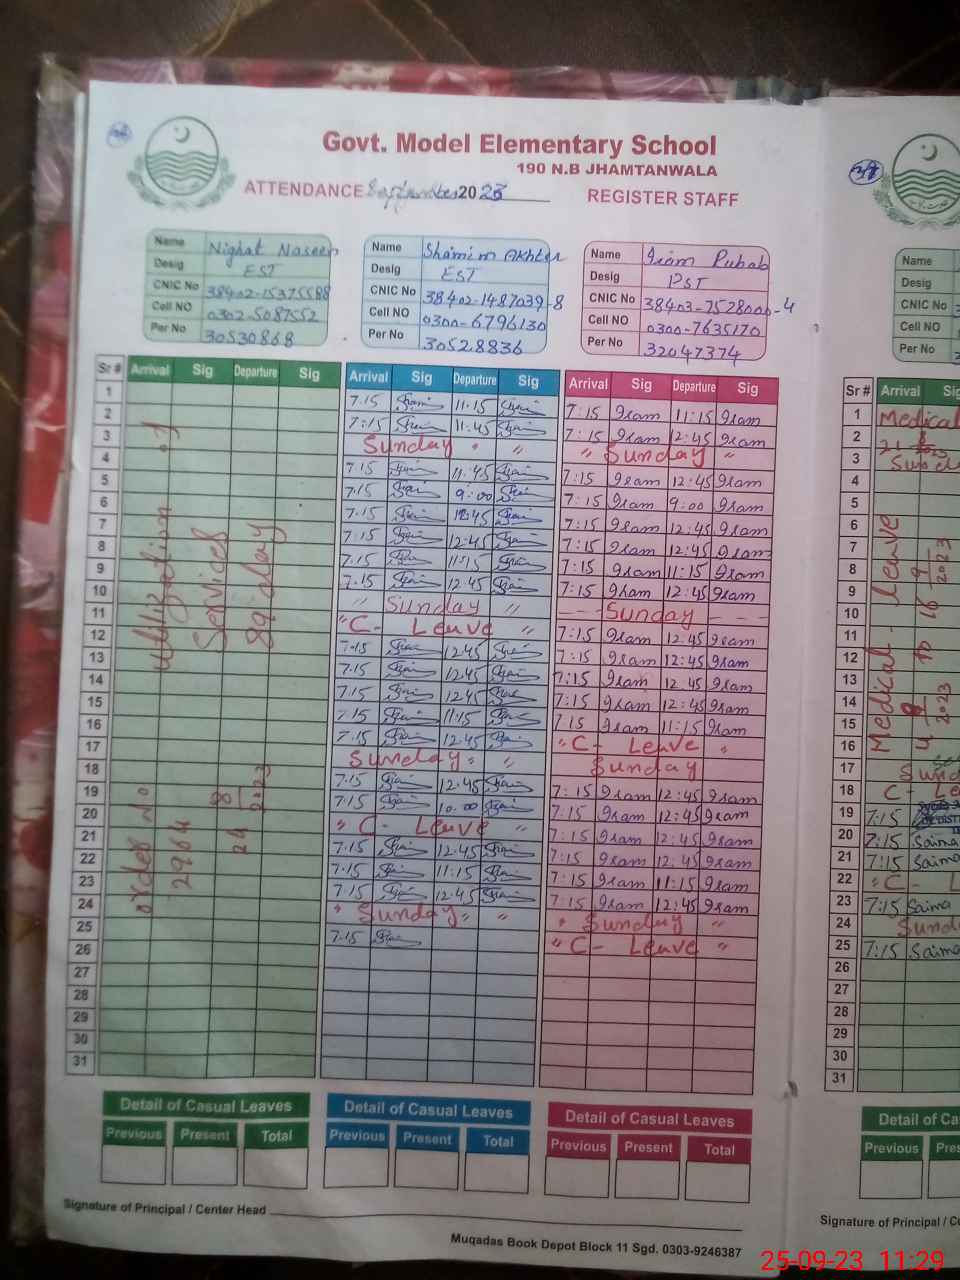 Govt. Model Elementary School
190 N.B JHAMTANWALA
ATTENDANCE September 2023 REGISTER STAFF
Name Nighat Naseem
Desig EST
CNIC No 38402-15375588
Cell NO 0302-5087552
Per No 30530868
Name Shamim Akhter
Desig EST
CNIC No 38402-1487039-8
Cell NO 0300-6796130
Per No 30528836
Name Iram Rubab
Desig PST
CNIC No 38403-7528000-4
Cell NO 0300-7635170
Per No 32047374
Name
Desig
CNIC No
Cell NO
Per No
Sr # Arrival Sig Departure Sig Arrival Sig Departure Sig Arrival Sig Departure Sig Sr # Arrival Sig
1 7.15 11.15 7:15 Iram 11:15 Iram 1 Medical
2 7:15 11.45 7:15 Iram 12:45 Iram 2
3 Sunday " " " Sunday " 3
4 7.15 11.45 7:15 Iram 12:45 Iram 4
5 7.15 9:00 7:15 Iram 9:00 Iram 5
6 7.15 12.45 7:15 Iram 12:45 Iram 6
7 7.15 12.45 7:15 Iram 12:45 Iram 7
8 7.15 11:15 7:15 Iram 11:15 Iram 8
9 7.15 12.45 7:15 Iram 12:45 Iram 9
10 " Sunday " Sunday 10
11 "C- Leave " 7:15 Iram 12:45 Iram 11
12 7.15 12.45 7:15 Iram 12:45 Iram 12
13 7.15 12.45 7:15 Iram 12.45 Iram 13
14 7.15 12.45 7:15 Iram 12:45 Iram 14
15 7.15 11:15 7.15 Iram 11:15 Iram 15
16 7.15 12.45 "C- Leave " 16
17 Sunday " " Sunday 17
18 7.15 12.45 7:15 Iram 12:45 Iram 18 C- Le
19 7.15 10.00 7:15 Iram 12:45 Iram 19 7:15
20 " C- Leave " 7:15 Iram 12:45 Iram 20 7:15 Saima
21 7.15 12.45 7:15 Iram 12:45 Iram 21 7:15 Saima
22 7.15 11:15 7:15 Iram 11:15 Iram 22 "C- L
23 7.15 12.45 7:15 Iram 12:45 Iram 23 7:15 Saima
24 " Sunday " " " Sunday " 24 Sund
25 7.15 "C- Leave " 25 7:15 Saima
26 26
27 27
28 28
29 29
30 30
31 31
Utilization of
Services
89 day
order No
2964
24 8 2023
Medical leave
4 9 2023 to 16 9 2023
Detail of Casual Leaves Detail of Casual Leaves Detail of Casual Leaves Detail of Ca
Previous Present Total Previous Present Total Previous Present Total Previous Pres
Signature of Principal / Center Head
Signature of Principal / C
Muqadas Book Depot Block 11 Sgd. 0303-9246387
25-09-23 11:29